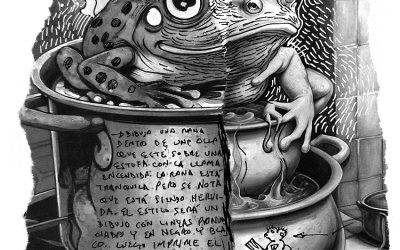 —DBIBUJO UNA RANA
DENTRO DE UNA OLLA
QUE ESTÉ SOBRE UNA
ESTUFA CON LA LLAMA
ENCENDIDA. LA RANA ESTÁ
TRANQUILA. PERO SE NOTA
QUE ESTÁ SIENDO HERVI-
DA. EL ESTILO SERÁ UN
DIBUJO CON LINEAS
Y EN NEGRO Y BLAN
CO. LUEGO IMPRIME EL